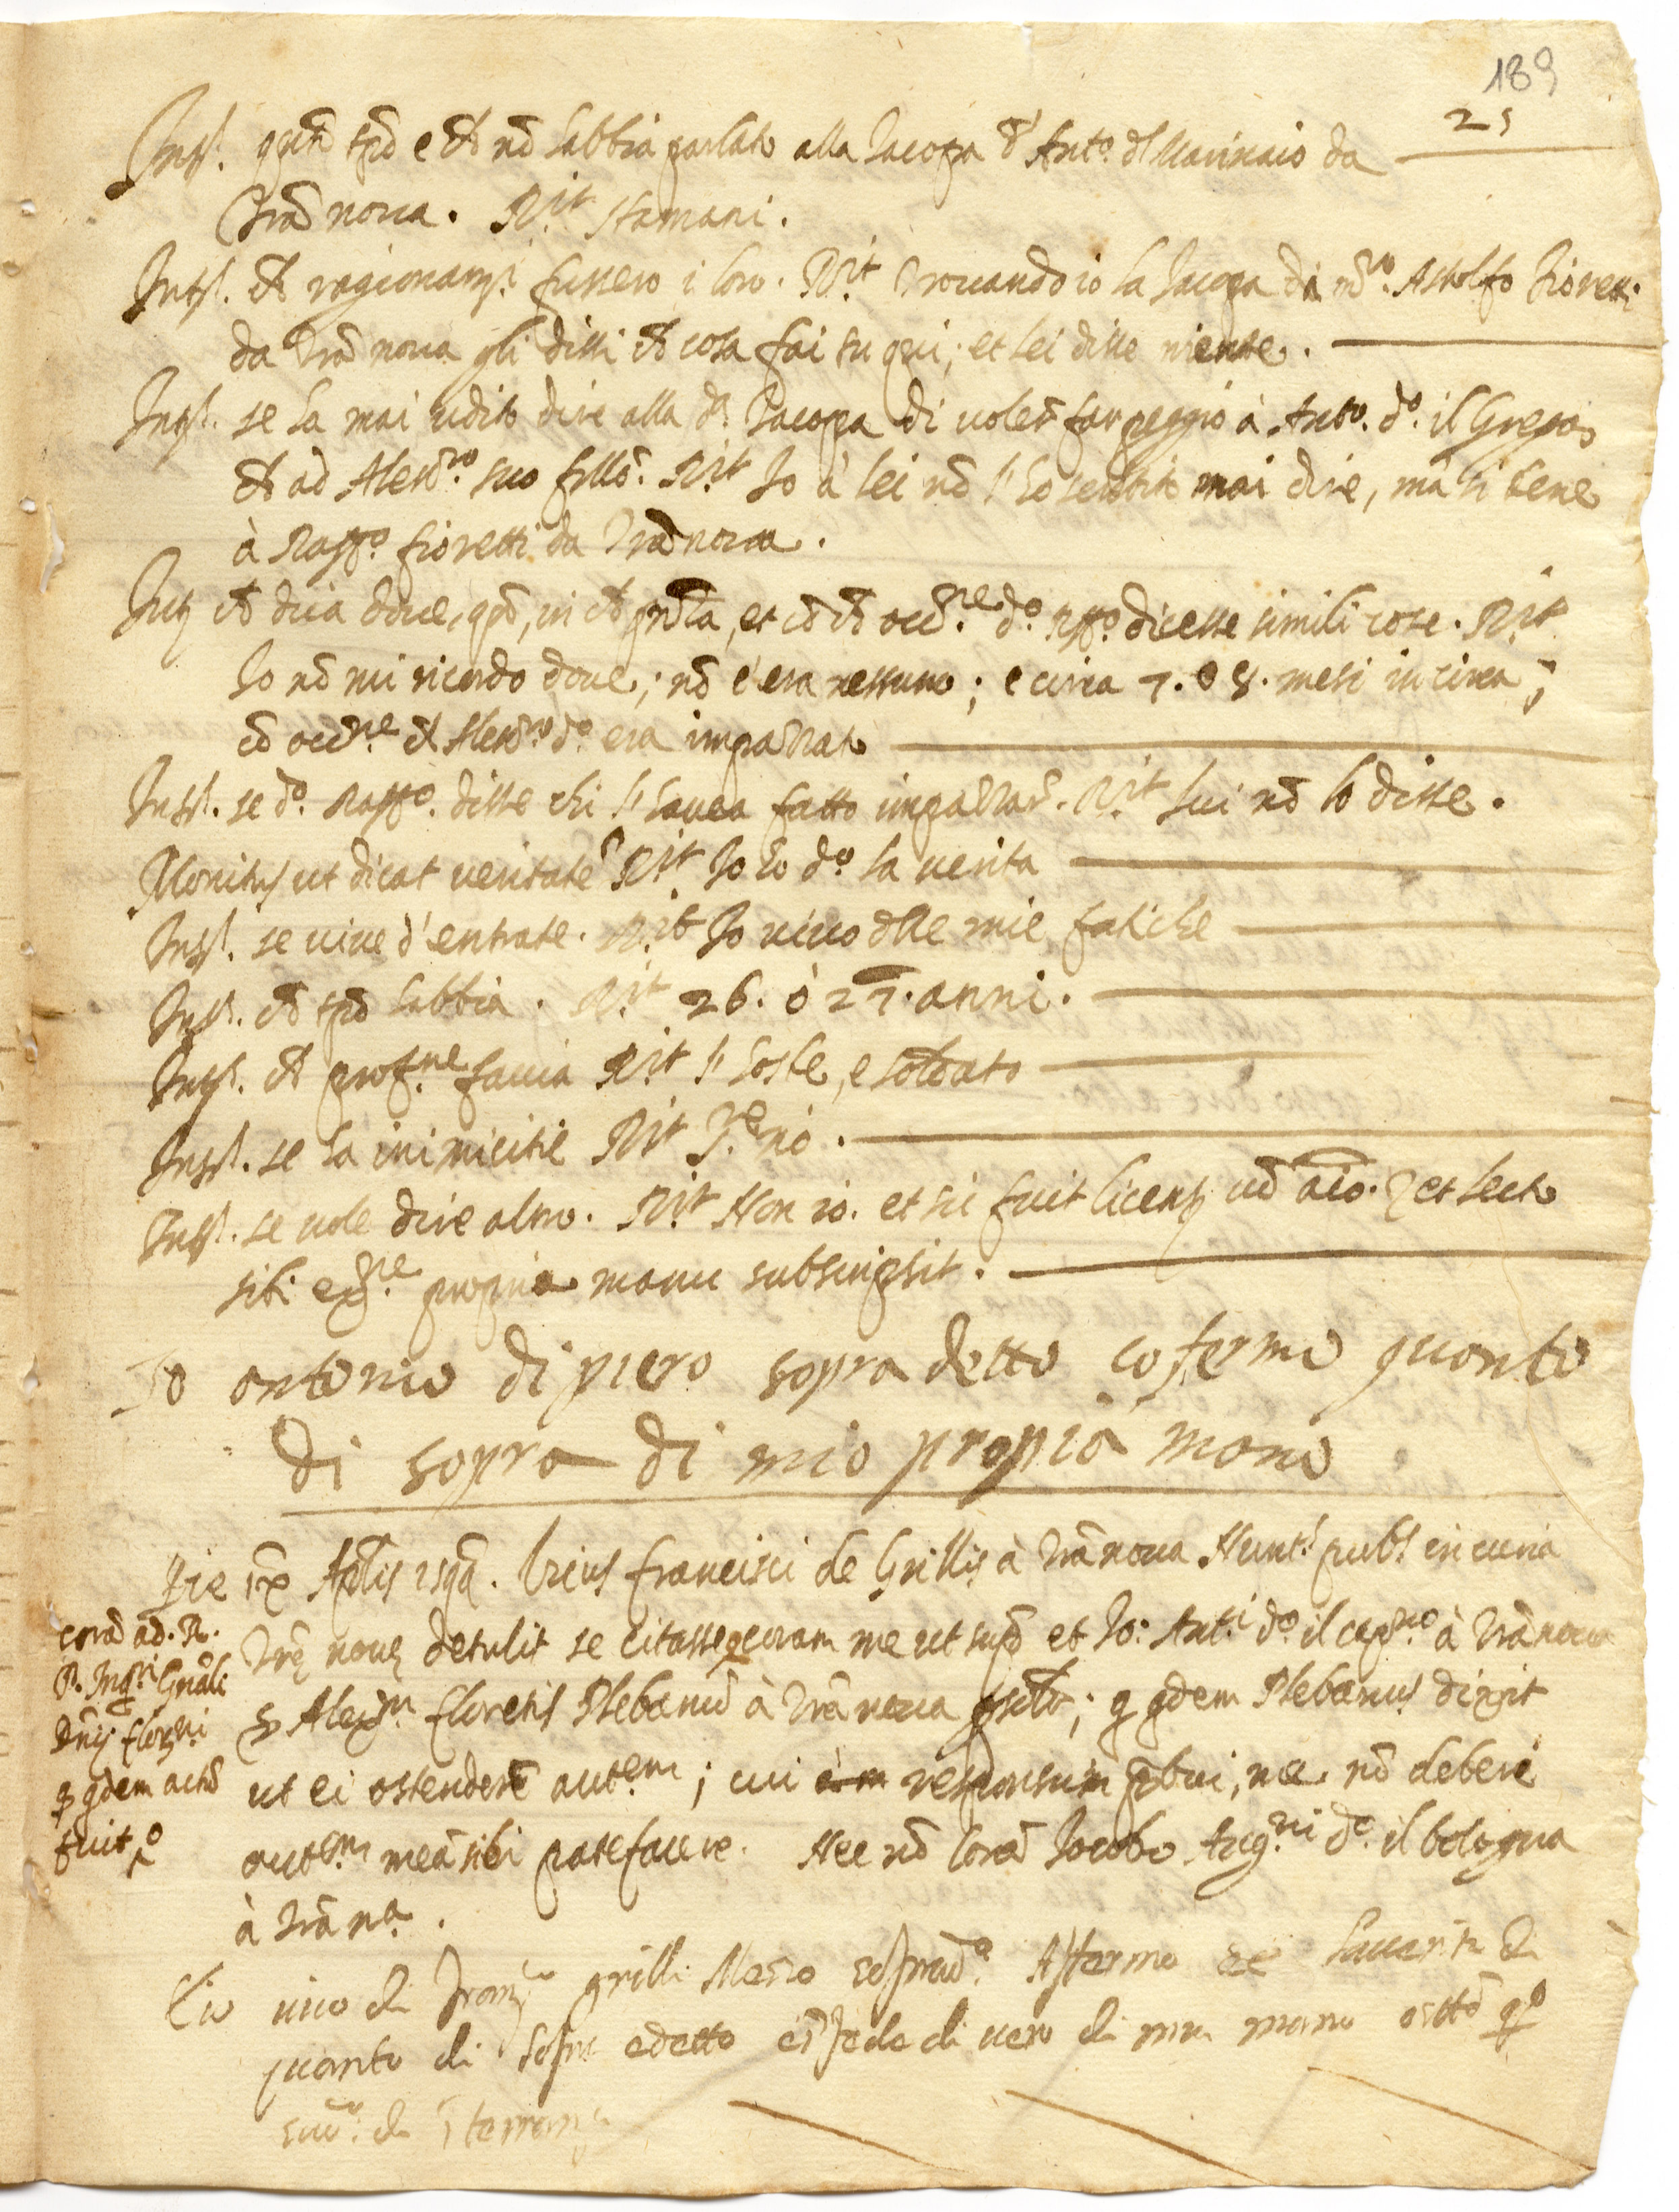 189
25
Intt. qũto tp̃o e ch nõ habbia parlato alla Jacopa d' Antº. dl Marinaio da
Trã nova. Rit Stamani.
Intt. ch ragionamti fussero i loro. Rit Trovando io la Jacopa di mro. Astolfo Fioretti
da Trã nova gli dissi ch cosa fai tu qui; et lei disse niente.
Intt. se ha mai udito dire alla da Jacopa di voler far peggio à Antº. dº. il Grego
ch ad Alessro. suo fillõ. Rit Io à lei nõ l'ho sentito mai dire, mà si bene
à Raffº. fioretti da Trãnova.
Intt ch dica dove, qñ, in ch pñtia, et cõ ch occne dº Rffº dicesse simili cose. Rit
Io nõ mi ricordo dove; nõ c'era nessuno; e circa 7. o 8. mesi in circa;
cõ occne ch Alessro dº era impazzato
Intt. se dº. Raffº. disse chi l'havea fatto impazzar. Rit Lui nõ lo disse.
Monitus ut dicat veritatẽ Rit Io ho dº la verita
Intt. se vive d'entrate. Rit Io vivo dlle mie fatiche
Intt. ch tp̃o habbia. Rit 26. ò 27. anni.
Intt. ch profne faccia Rit l'hoste, e soldato
Intt. se ha inimicitie Rit Sre nò.
Intt. se vole dire altro. Rit Non io. et sic fuit licents cũ aĩo. et lecto
sibi exne propria manu subscripsit.
Io antonio di piero sopra detto cofermo quanto
di sopra di mio propia mano
Die ix Aplis 1592. Vivus francisci de Grillis à Trã nova Nunts pubs in curia
Trę novę detulit se citasse coram me ut supra et Io: Anti dº il capno à Trã nova
D Alexrm florettis Plebanũ à Trã nova; q qdem Plebanus dixit
ut ei ostenderẽ autem; cui responsum p̃bui, me nõ debere
autem meã sibi patefacere. Nec nõ Corã Jacobo Augni dº il bologna
à Trã nª.
corã ad. R.
P. Inqri Gñali
Dñij Florni
q qdem acto
fuit
Eio vivo di franco grilli Messo sopradº. Afermo ee
quanto di sopra edetto ei fede di vero di mia mano